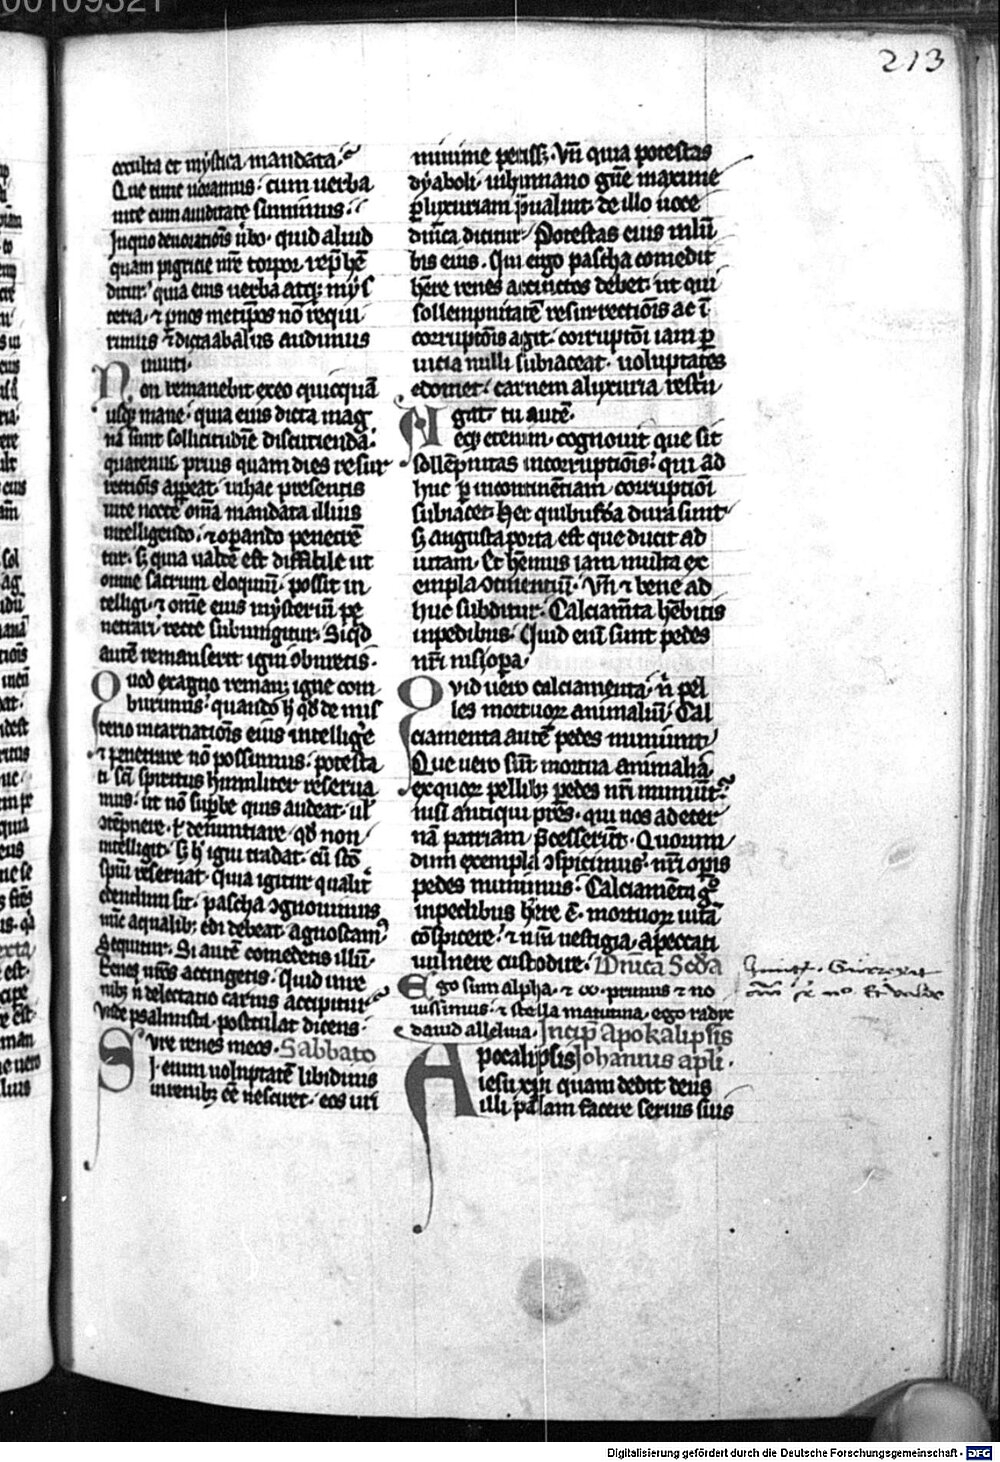 00109321
213
occulta et mystica mandata.
Que tunc uoramus. cum uerba
uite cum auiditate sumimus.
In quo deuorationis ũbo. quid aliud
quam pigricie nr̃e torpor rep̃hẽ
ditur. quia eius uerba atq; mys
teria. ⁊ p nos metip̃os nõ requi
rimus ⁊ dicta ab aliis audimus
inuiti.
Non remanebit ex eo quicquã
usq; mane. quia eius dicta mag
na sunt sollicitudine discutienda.
quatenus prius quam dies resur
rectiõis appeat. in hac presentis
uite nocte om̃a mandata illius
intelligendo. ⁊ operando penetrẽ
tur. s; quia ualde est difficile ut
omne sacrum eloquiũ. possit in
telligi. ⁊ om̃e eius mysteriũ pe
netrari recte subiungitur. Si qd
autẽ remanserit igni oburetis.
Quod ex agno remanz igne com
burimus. quando h̾ qd de mis
terio incarnatiõis eius intellige̾
⁊ penetrare nõ possumus. potesta
ti scĩ spiritus humiliter reserua
mus. ut nõ supbe quis audeat. ul̾
ↄtẽpnere. ł denuntiare. qd non
intelligit. s; h̾ igni tradat. cũ scõ
spũi reseruat. quia igitur qualit̾
edendum sit. pascha ↄgnouimus
nũc a qualib; edi debeat. agnoscam̾
Sequitur. Si autẽ comedetis illũ.
Renes ur̃os accingetis. Quid in re
nib; ñ delectatio carnis accipitur
unde psalmista. postulat dicens.
Vre renes meos. Sabbato
Si. eum uoluptatẽ libidinis
in renib; eẽ nesciret. eos uri
minime petiss;. Vñ quia potestas
dyaboli. in humano gñe maxime
p luxuriam p̃ualuit. de illo uoce
diuĩca dicitur. Potestas eius in lũ
bis eius. Qui ergo pascha comedit
hẽre renes accinctos debet. ut qui
sollempnitatẽ resurrectiõis ac ĩ
corruptõis agit. corruptõi iam p
uicia nulli subiaceat. uoluptates
edomet. carnem a luxuria restri
gat. tu autẽ.
Neq; etenim. cognouit que sit
sollẽpnitas incorruptiõis. qui ad
huc p incontinẽtiam. corruptiõi
subiacet. Hec quibusdã dura sunt
s; angusta porta est que ducit ad
uitam. Et hẽmus iam multa ex
empla ↄtinentiũ. Vñ ⁊ bene ad
huc subditur. Calciam̃ta hẽbitis
in pedibus. Quid eñi sunt pedes
nr̃i nisi opa.
Quid uero calciamenta. ñ pel
les mortuoꝝ animaliũ. Cal
ciamenta autẽ pedes muniunt
Que uero sũt mortua animalia.
ex quoꝝ pellib; pedes nr̃i muniũt.
nisi antiqui pr̃es. qui nos ad eter
nã patriam p̃cesserũt. Quorum
dum exempla ↄspicimus. nr̃i opis
pedes munimus. Calciamẽta g̾
in pedibus hẽre ẽ. mortuoꝝ uitã
cõspicere. ⁊ nr̃m uestigia. a peccati
uulnere custodire. Dñica Scda
Ego sum alpha. ⁊ ω. primus ⁊ no
uissimus. ⁊ stella matutina. ego radyx
dauid alleluia. Incip̃ Apokalipsis
Apocalipsis Johannis apli.
iesu xp̃i quam dedit deus
illi palam facere seruis suis
Digitalisierung gefördert durch die Deutsche Forschungsgemeinschaft - DFG